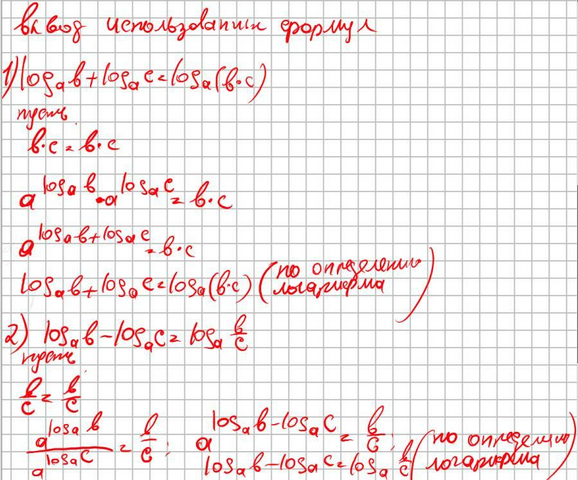 вывод использованных формул
1) log_a b + log_a c = log_a (b·c)
пусть
b·c = b·c
a^{log_a b} · a^{log_a c} = b·c
a^{log_a b + log_a c} = b·c
log_a b + log_a c = log_a (b·c) (по определению логарифма)
2) log_a b - log_a c = log_a b/c
пусть
b/c = b/c
a^{log_a b}/a^{log_a c} = b/c; a^{log_a b - log_a c} = b/c;
log_a b - log_a c = log_a b/c (по определению логарифма)